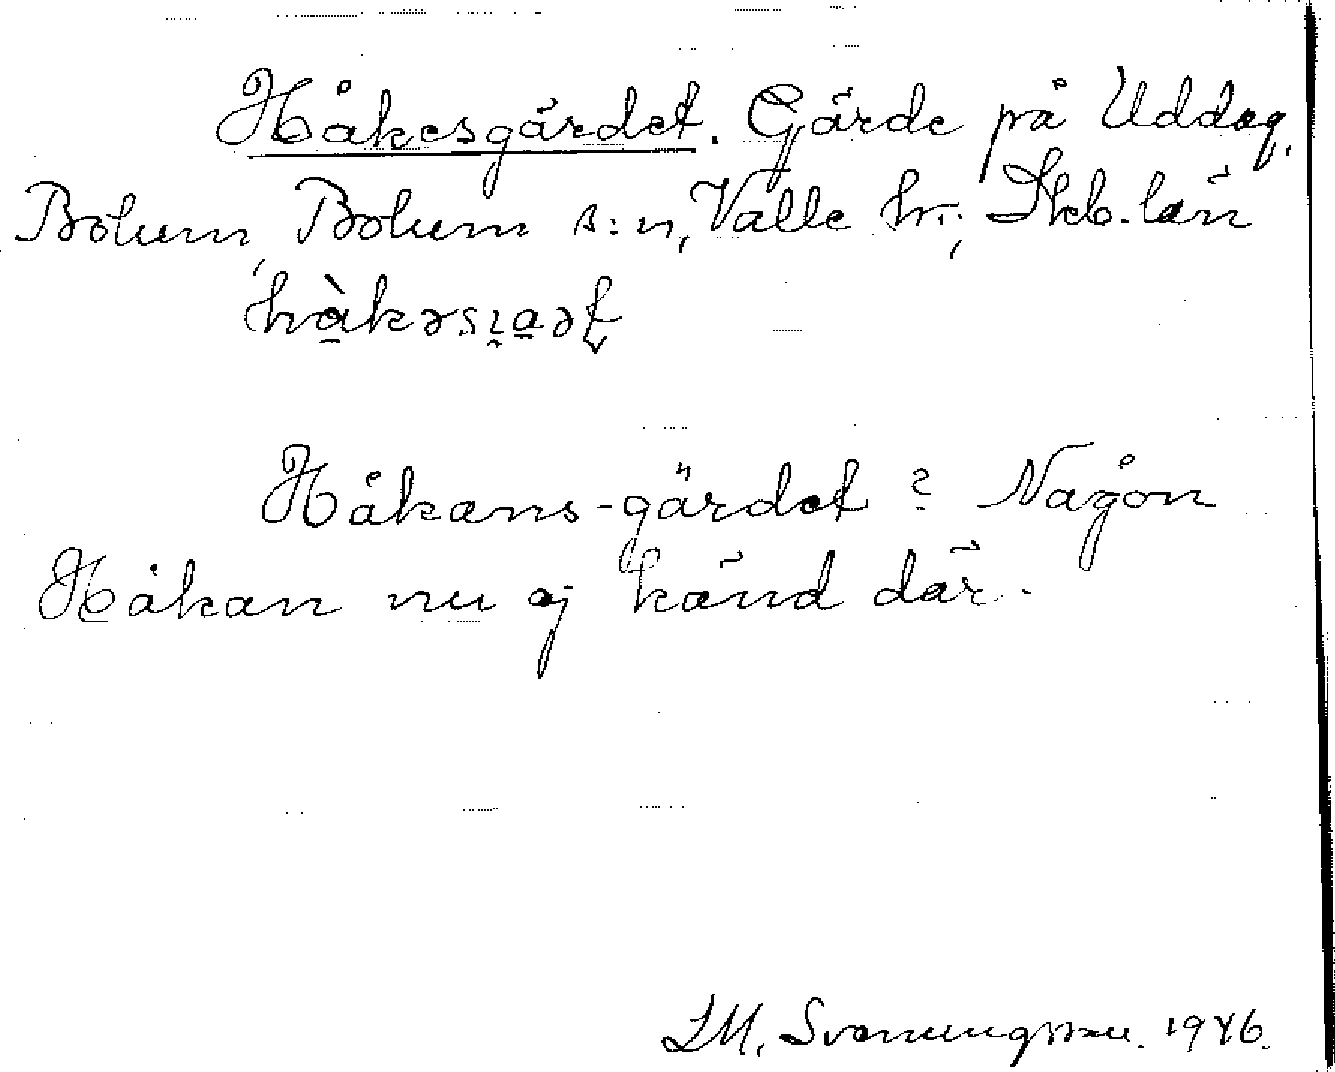 Håkesgärdet. Gärde på Uddag,
Bolum, Bolum s:n, Valle hr; Skb. län
Håkans-gärdet? Någon
Håkan nu ej känd där.
J.M. Svenungsson. 1946.